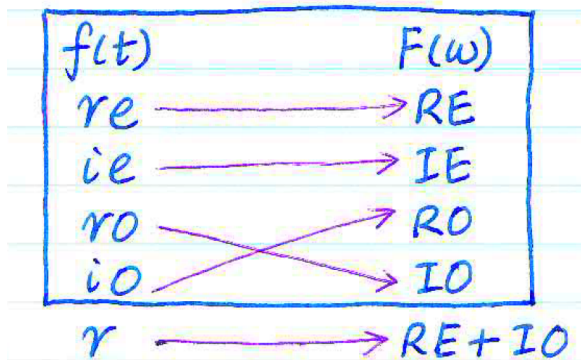 f(t) F(ω)
re → RE
ie → IE
ro RO
io IO
r → RE + IO